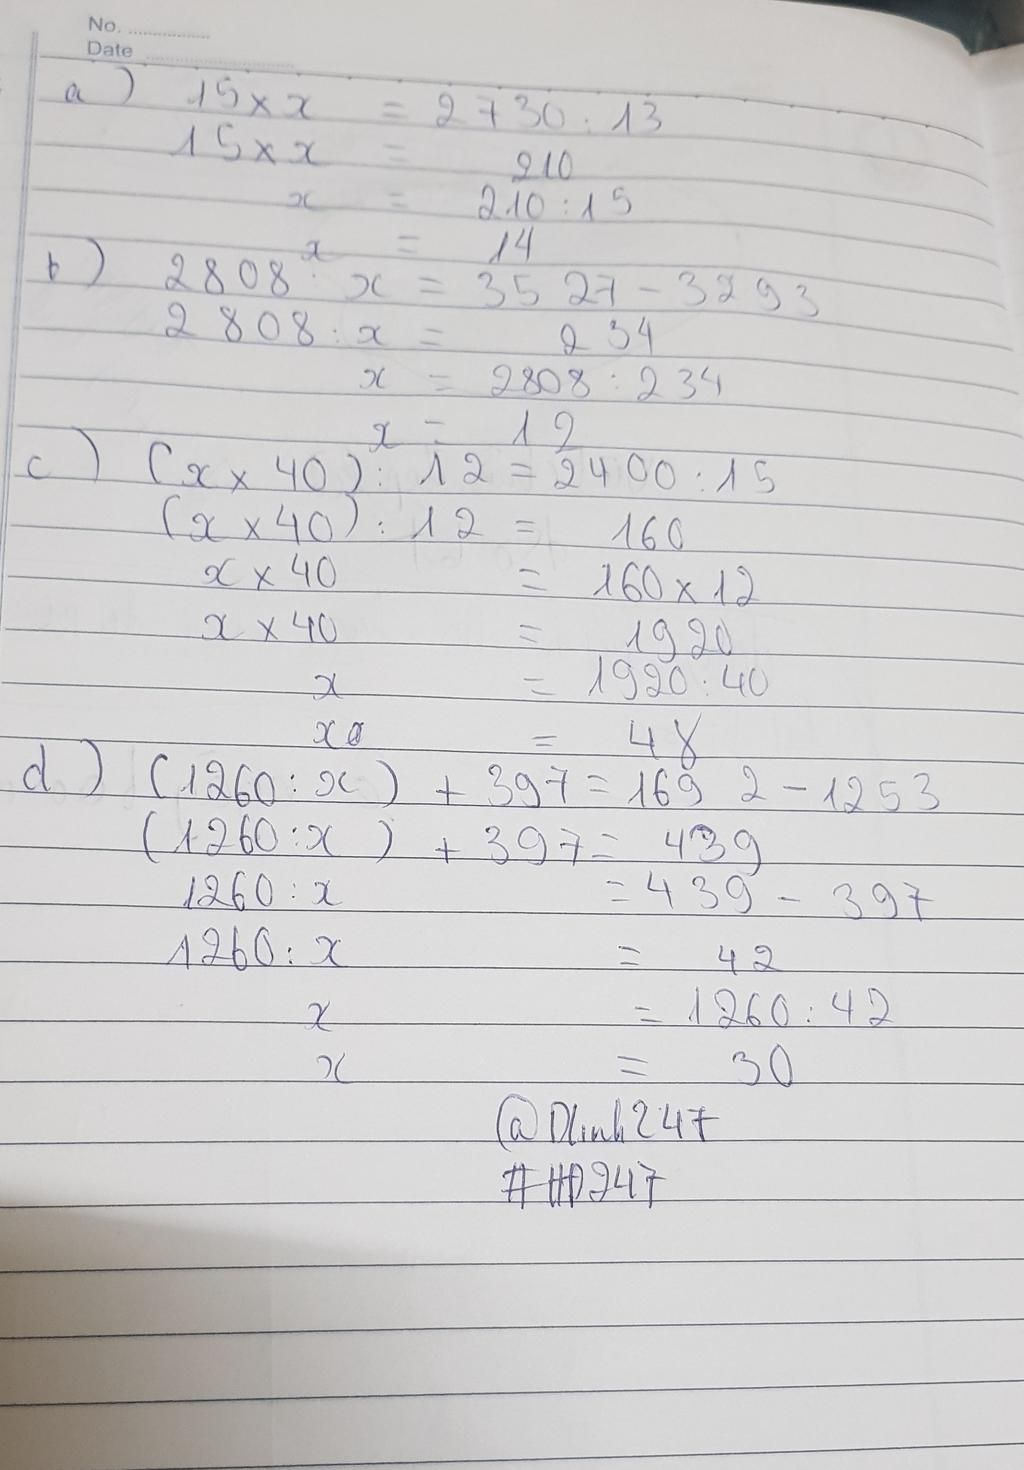 No. ................
Date ................
a) 15 × x = 2730 : 13
15 × x = 210
x = 210 : 15
x = 14
b) 2808 : x = 3527 - 3293
2808 : x = 234
x = 2808 : 234
x = 12
c) (x × 40) : 12 = 2400 : 15
(x × 40) : 12 = 160
x × 40 = 160 × 12
x × 40 = 1920
x = 1920 : 40
x = 48
d) (1260 : x) + 397 = 1692 - 1253
(1260 : x) + 397 = 439
1260 : x = 439 - 397
1260 : x = 42
x = 1260 : 42
x = 30
@Dlinh247
#HD247